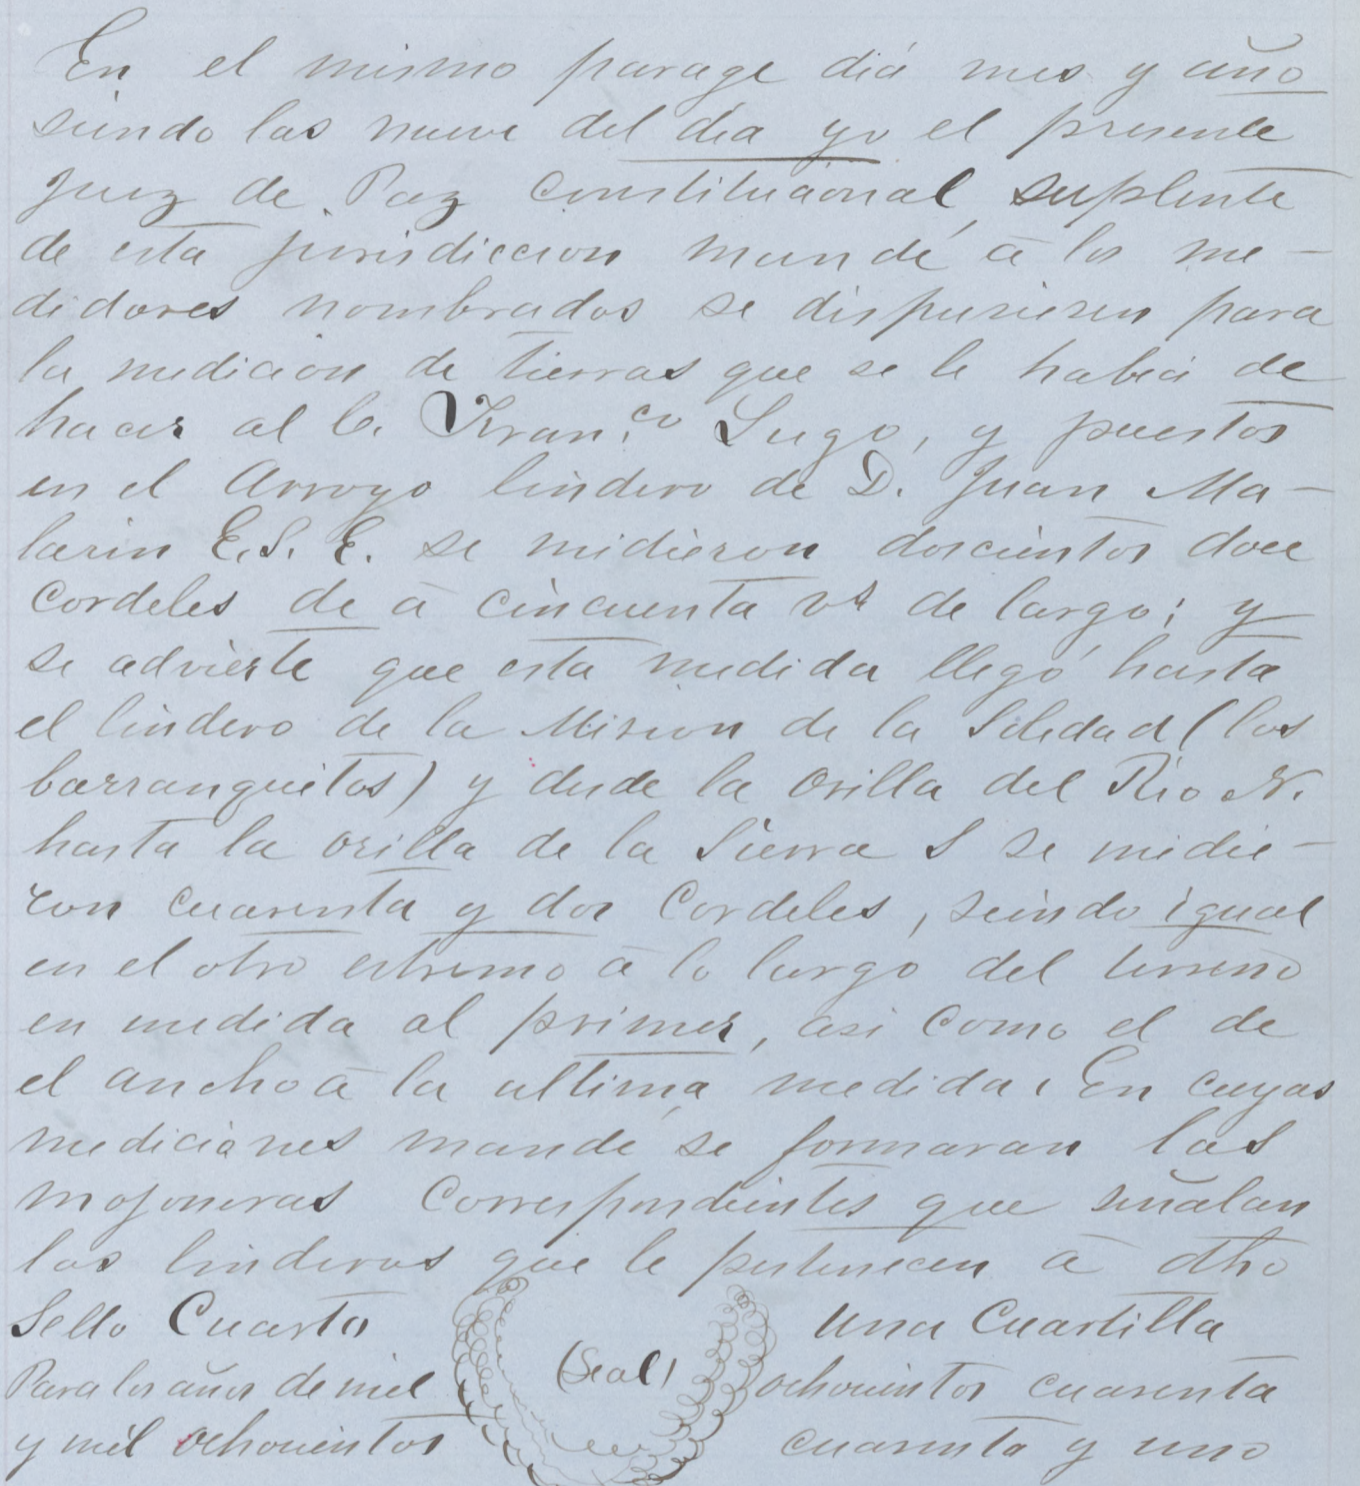 En el mismo parage diá mes y año
siendo las nueve del día yo el presente
Juez de Paz constitucional, suplente
de esta jurisdiccion mandé á los me-
didores nombrados se dispusiesen para
la medicion de tierras que se le habia de
hacer al C. Fran.co Lugo, y puestos
en el Arroyo lindero de D. Juan Ma-
larin E.S.E. se midieron doscientos doce
cordeles de á cincuenta vs de largo; y
se advierte que esta medida llegó hasta
el lindero de la Mision de la Soledad (los
barranquitos) y desde la orilla del Rio N.
hasta la orilla de la Sierra S se midie-
ron cuarenta y dos Cordeles, siendo igual
en el otro estremo á lo largo del terreno
en medida al primer, asi como el de
el ancho á la ultima medida. En cuyas
mediciones mandé se formaran las
mojoneras correspondientes que señalan
los linderos que le pertenecen á dho
Sello Cuarto (Seal) Una Cuartilla
Para los años de mil ochocientos cuarenta
y mil ochocientos cuarenta y uno